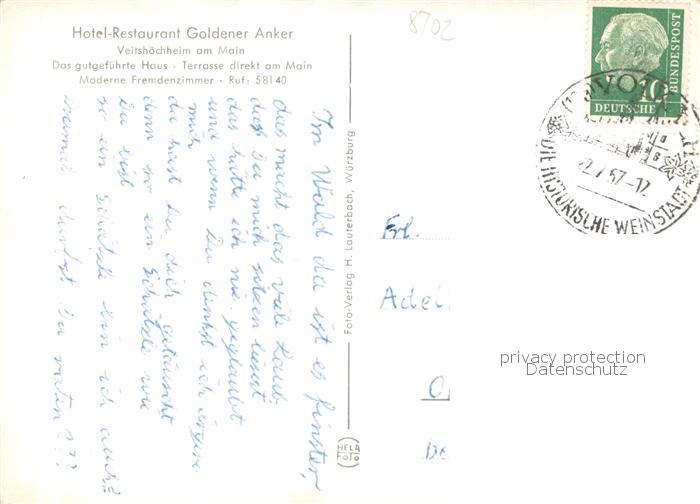 Hotel-Restaurant Goldener Anker
Veitshöchheim am Main
Das gutgeführte Haus · Terrasse direkt am Main
Moderne Fremdenzimmer · Ruf: 58140
8702
Im Wald da ist es finster,
das macht das viele Laub.
daß Du mich sitzen lässt
das hätte ich nie geglaubt
und wenn Du denkst ich ärgere
mich
da hast Du Dich getäuscht
denn so ein Schätzle wie
Du bist
so ein Schätzle bin ich auch!
nun darfst Du raten???
Foto-Verlag H. Lauterbach, Würzburg
HELA
Foto
10
DEUTSCHE
BUNDESPOST
DIE HISTORISCHE WEINSTADT
Frl.
Adel
privacy protection
Datenschutz